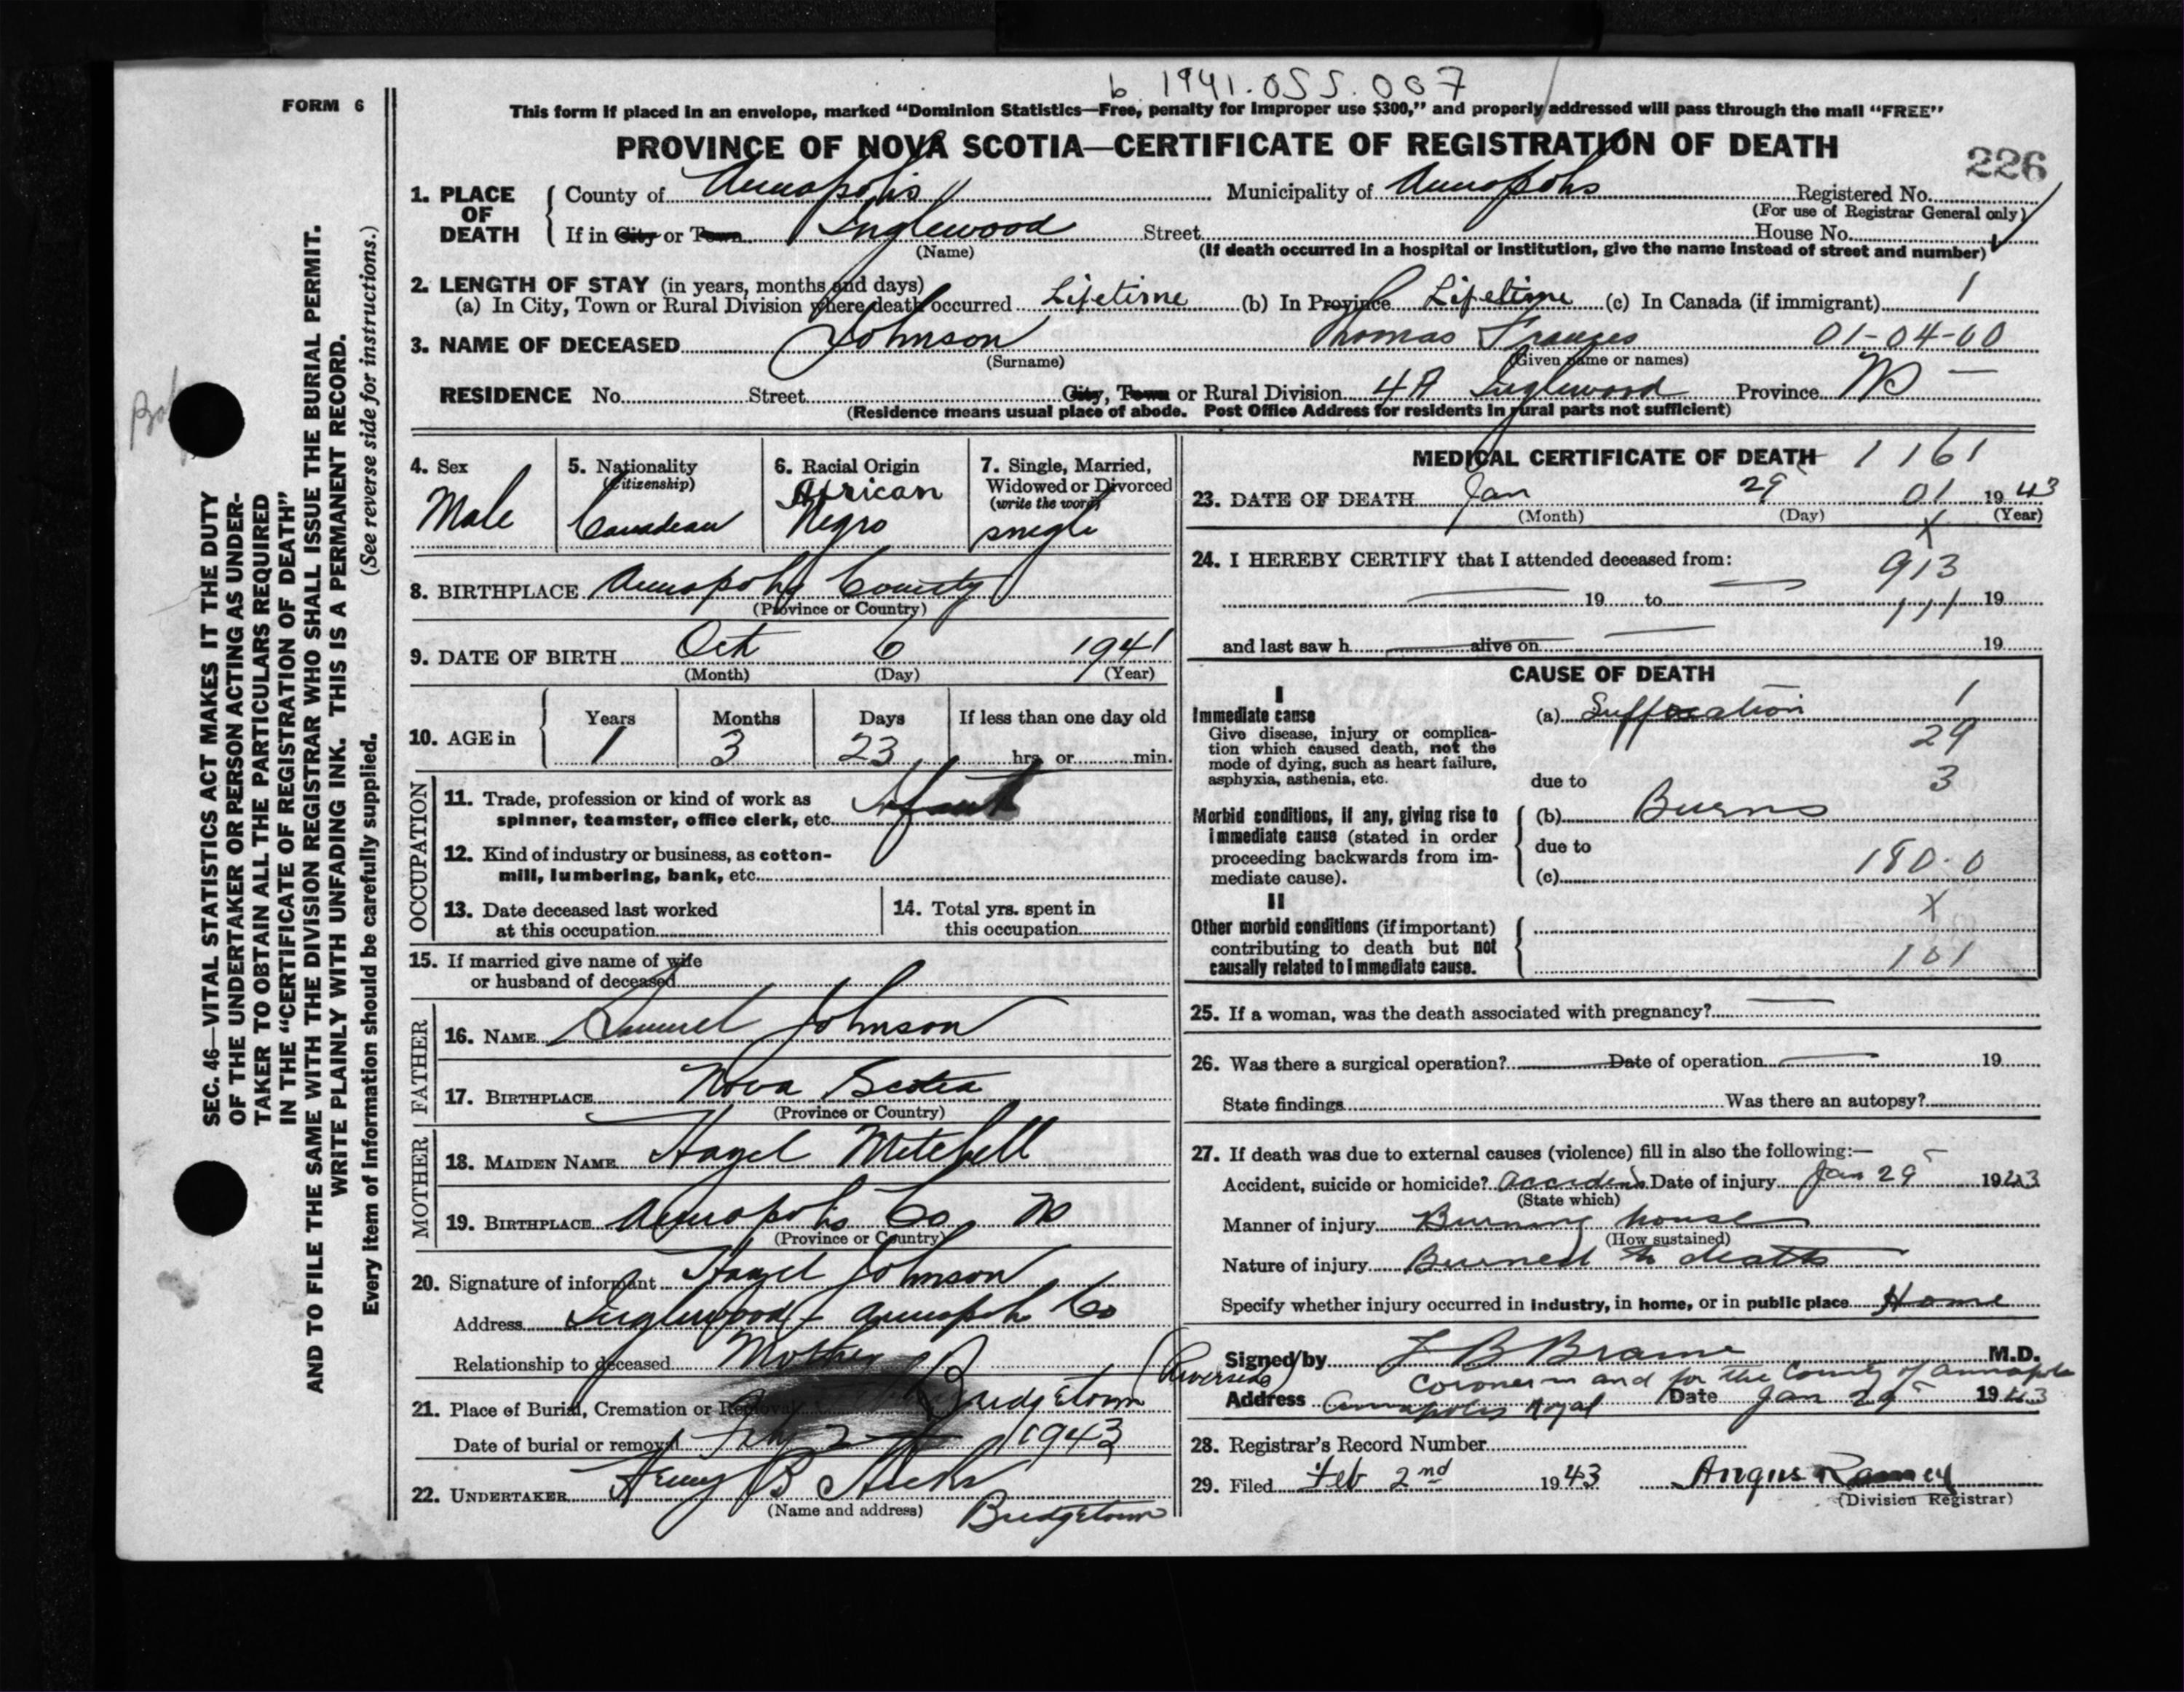 b 1941.055.007
FORM 6
This form if placed in an envelope, marked “Dominion Statistics—Free, penalty for improper use $300,” and properly addressed will pass through the mail “FREE”
PROVINCE OF NOVA SCOTIA—CERTIFICATE OF REGISTRATION OF DEATH
226
1. PLACE OF DEATH { County of Annapolis Municipality of Annapolis Registered No.
(For use of Registrar General only)
If in City or Town Inglewood Street House No.
(Name) (If death occurred in a hospital or institution, give the name instead of street and number)
2. LENGTH OF STAY (in years, months and days)
(a) In City, Town or Rural Division where death occurred Lifetime (b) In Province Lifetime (c) In Canada (if immigrant) 1
3. NAME OF DECEASED Johnson Thomas Frances 01-04-60
(Surname) (Given name or names)
RESIDENCE No. Street City, Town or Rural Division 4A Inglewood Province NS —
(Residence means usual place of abode. Post Office Address for residents in rural parts not sufficient)
4. Sex
Male
5. Nationality
(Citizenship)
Canadean
6. Racial Origin
African
Negro
7. Single, Married,
Widowed or Divorced
(write the word)
single
8. BIRTHPLACE Annapolis County
(Province or Country)
9. DATE OF BIRTH Oct 6 1941
(Month) (Day) (Year)
10. AGE in { Years Months Days If less than one day old
1 3 23 hrs. or min.
OCCUPATION
11. Trade, profession or kind of work as
spinner, teamster, office clerk, etc. Infant
12. Kind of industry or business, as cotton-
mill, lumbering, bank, etc.
13. Date deceased last worked
at this occupation
14. Total yrs. spent in
this occupation
15. If married give name of wife
or husband of deceased
FATHER
16. NAME Samuel Johnson
17. BIRTHPLACE Nova Scotia
(Province or Country)
MOTHER
18. MAIDEN NAME Hazel Mitchell
19. BIRTHPLACE Annapolis Co NS
(Province or Country)
20. Signature of informant Hazel Johnson
Address Inglewood Annapolis Co
Relationship to deceased Mother
21. Place of Burial, Cremation or Removal Bridgetown (Riverside)
Date of burial or removal Feb 2 1943
22. UNDERTAKER Henry B Hicks
(Name and address) Bridgetown
MEDICAL CERTIFICATE OF DEATH 1161
23. DATE OF DEATH Jan 29 01 1943
(Month) (Day) X (Year)
24. I HEREBY CERTIFY that I attended deceased from:
913
19 to 111 19
and last saw h alive on 19
CAUSE OF DEATH
I
Immediate cause
Give disease, injury or complica-
tion which caused death, not the
mode of dying, such as heart failure,
asphyxia, asthenia, etc.
(a) Suffocation 1
29
due to 3
Morbid conditions, if any, giving rise to
immediate cause (stated in order
proceeding backwards from im-
mediate cause).
(b) Burns
due to
(c) 180.0
II X
Other morbid conditions (if important)
contributing to death but not
causally related to immediate cause.
101
25. If a woman, was the death associated with pregnancy?
26. Was there a surgical operation? Date of operation 19
State findings Was there an autopsy?
27. If death was due to external causes (violence) fill in also the following:—
Accident, suicide or homicide? Accident Date of injury Jan 29 1943
(State which)
Manner of injury Burning house
(How sustained)
Nature of injury Burned to death
Specify whether injury occurred in industry, in home, or in public place Home
Signed by M.D.
Coroner in and for the County of Annapolis
Address Annapolis Royal Date Jan 29 1943
28. Registrar's Record Number
29. Filed Feb 2nd 1943 Angus Ramey
(Division Registrar)
SEC. 46—VITAL STATISTICS ACT MAKES IT THE DUTY
OF THE UNDERTAKER OR PERSON ACTING AS UNDER-
TAKER TO OBTAIN ALL THE PARTICULARS REQUIRED
IN THE “CERTIFICATE OF REGISTRATION OF DEATH”
AND TO FILE THE SAME WITH THE DIVISION REGISTRAR WHO SHALL ISSUE THE BURIAL PERMIT.
WRITE PLAINLY WITH UNFADING INK. THIS IS A PERMANENT RECORD.
Every item of information should be carefully supplied. (See reverse side for instructions.)